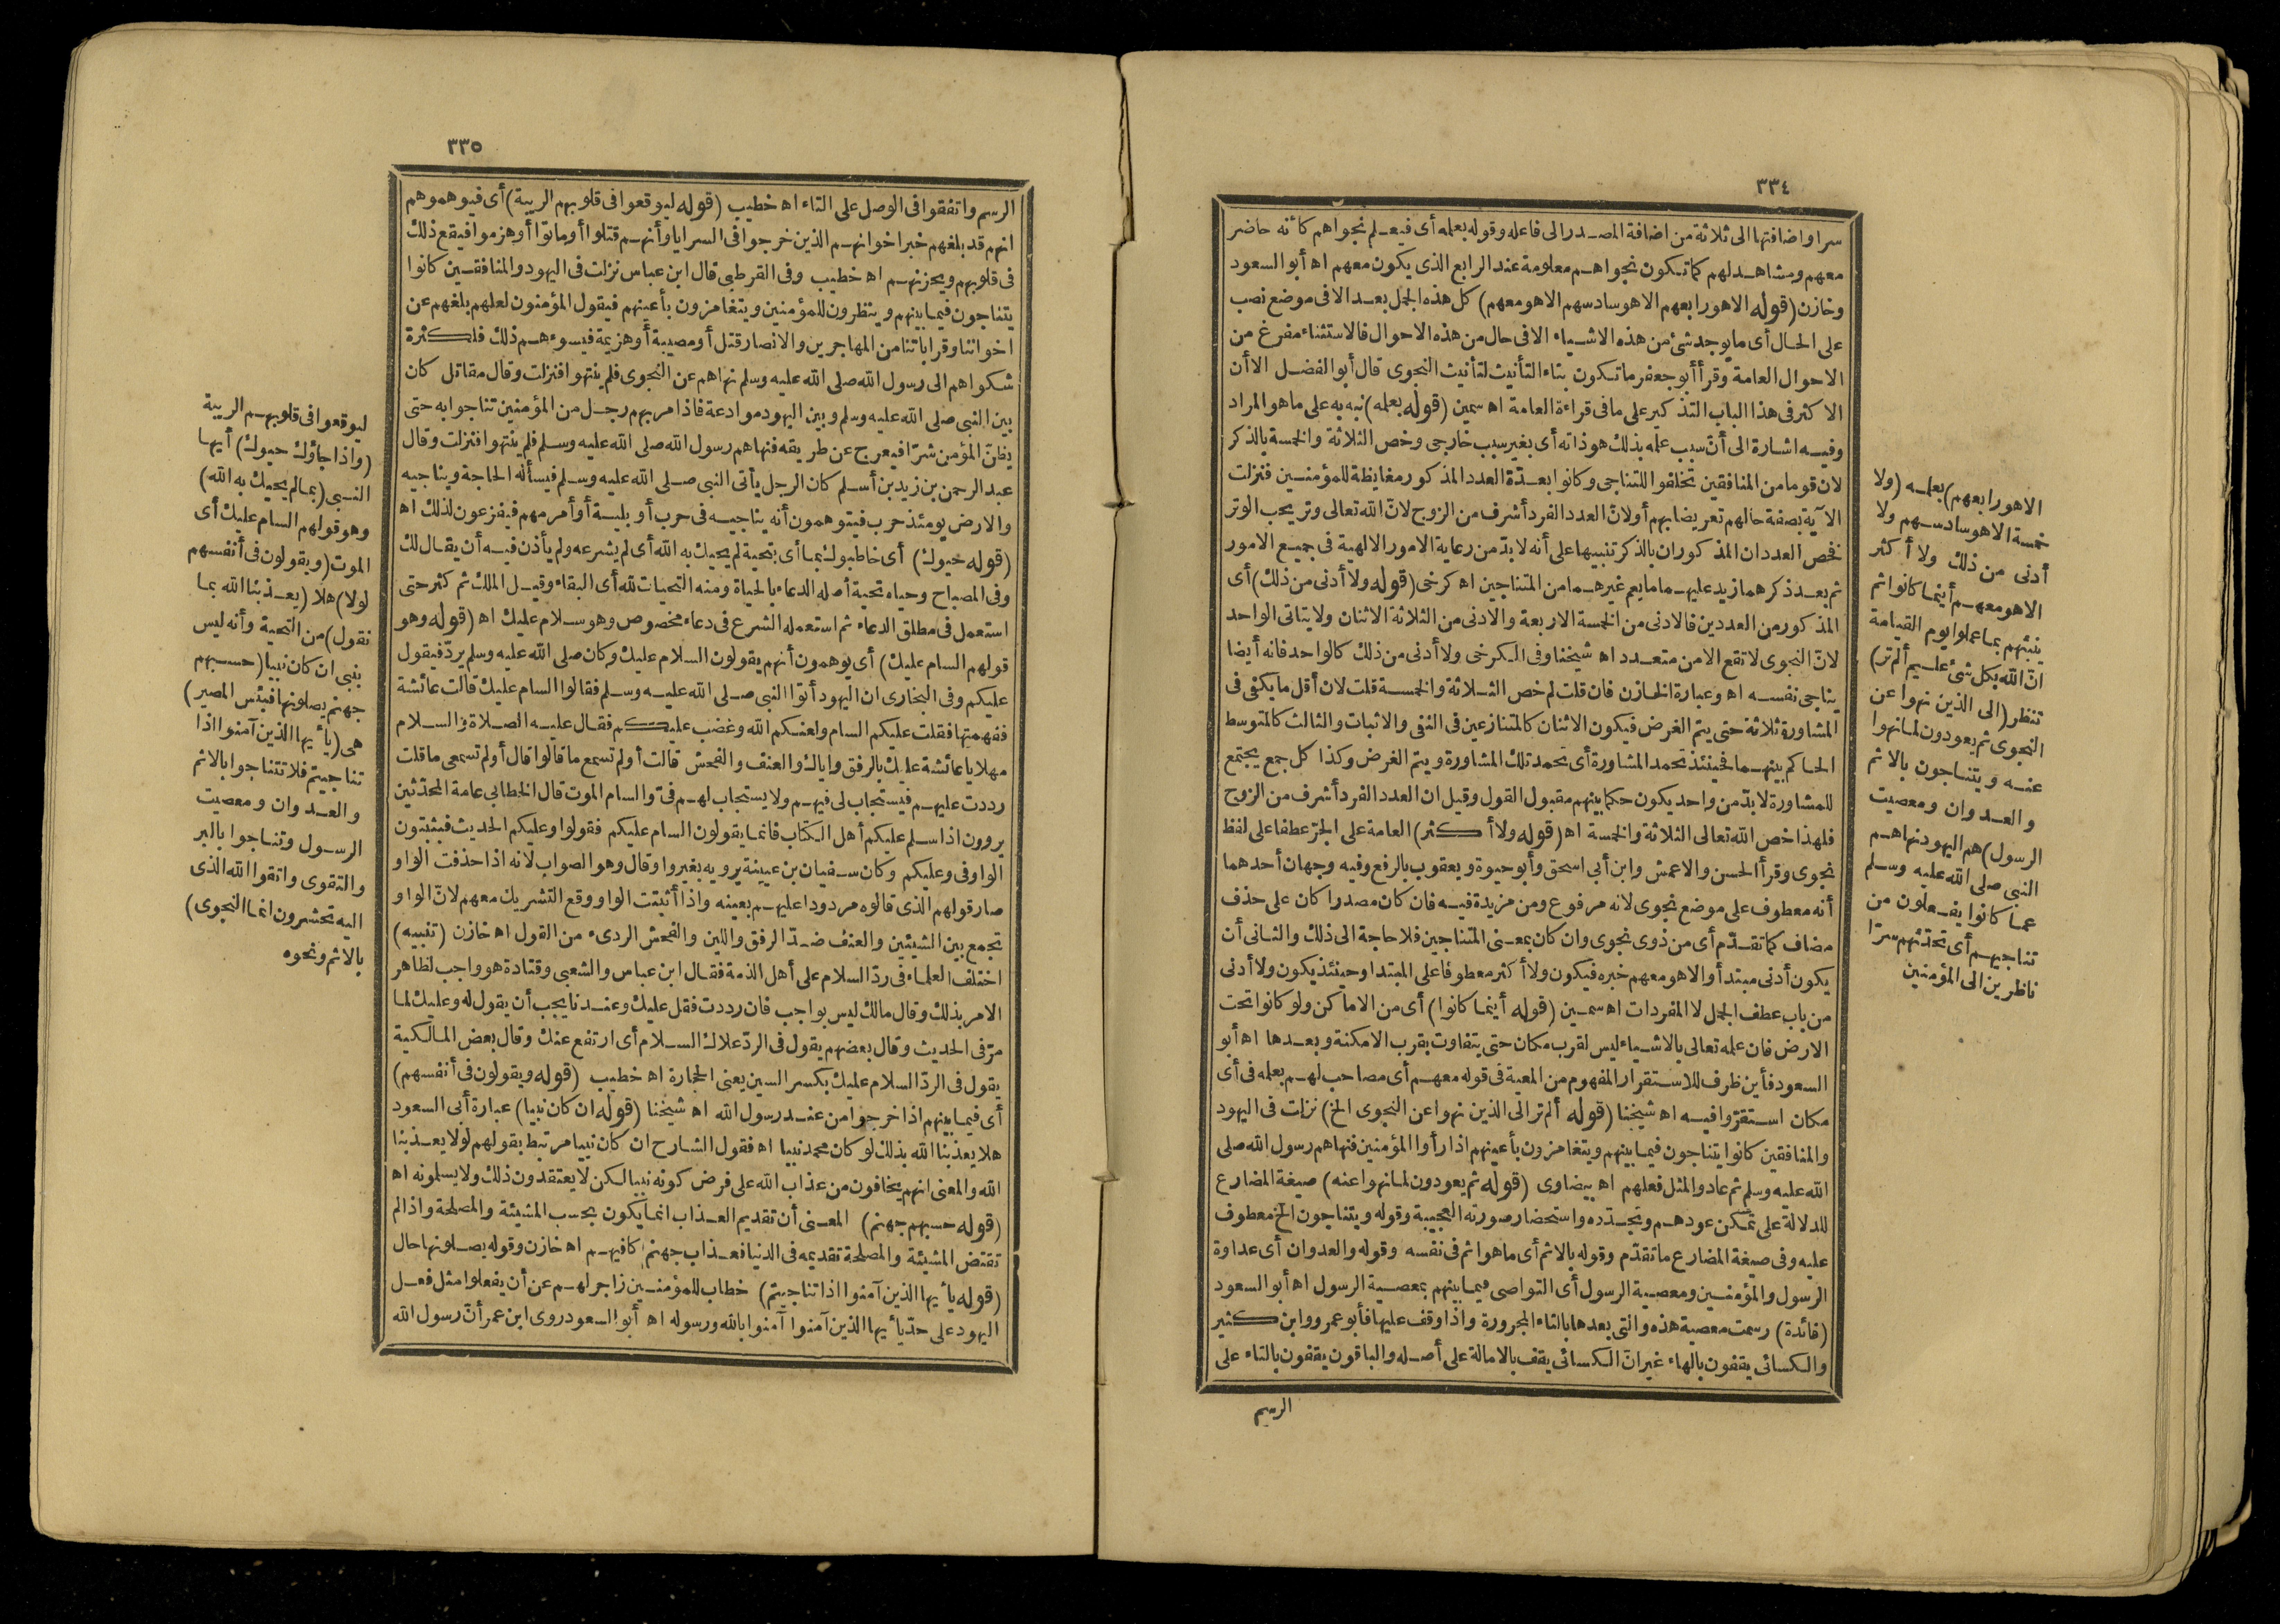 ٣٣٤
سرا واضافتها الى ثلاثة من اضافة المصدر الى فاعله وقوله بعلمه أى فيعلم نجواهم كأنه حاضر
معهم ومشاهد لهم كما تكون نجواهم معلومة عند الرابع الذى يكون معهم اه أبو السعود
وخازن (قوله الا هو رابعهم الا هو سادسهم الا هو معهم) كل هذه الجمل بعد الا فى موضع نصب
على الحال أى ما يوجد شئ من هذه الاشياء الا فى حال من هذه الاحوال فالاستثناء مفرغ من
الاحوال العامة وقرأ أبو جعفر ما تكون بتاء التأنيث لتأنيث النجوى قال أبو الفضل الا أن
الاكثر فى هذا الباب التذكير على ما فى قراءة العامة اه سمين (قوله بعلمه) نبه به على ما هو المراد
وفيه اشارة الى أن سبب علمه بذلك هو ذاته أى بغير سبب خارجى وخص الثلاثة والخمسة بالذكر
لان قوما من المنافقين تحلقوا للتناجى وكانوا بعدّة العدد المذكور مغايظة للمؤمنين فنزلت
الآية بصفة حالهم تعريضا بهم أو لان العدد الفرد أشرف من الزوج لان الله تعالى وتر يحب الوتر
فخص العددان المذكوران بالذكر تنبيها على أنه لا بدّ من رعاية الامور الالهية فى جميع الامور
ثم بعد ذكرهما زيد عليهما ما يعم غيرهما من المتناجين اه كرخى (قوله ولا أدنى من ذلك) أى
المذكور من العددين فالادنى من الخمسة الاربعة والادنى من الثلاثة الاثنان ولا يتاتى الواحد
لان النجوى لا تقع الا من متعدد اه شيخنا وفى الكرخى ولا أدنى من ذلك كالواحد فانه أيضا
يناجى نفسه اه وعبارة الخازن فان قلت لم خص الثلاثة والخمسة قلت لان أقل ما يكفى فى
المشاورة ثلاثة حتى يتم الغرض فيكون الاثنان كالمتنازعين فى النفى والاثبات والثالث كالمتوسط
الحاكم بينهما فحينئذ تحمد المشاورة أى تحمد تلك المشاورة ويتم الغرض وكذا كل جمع يجتمع
للمشاورة لا بدّ من واحد يكون حكما بينهم مقبول القول وقيل ان العدد الفرد أشرف من الزوج
فلهذا خص الله تعالى الثلاثة والخمسة اه (قوله ولا أكثر) العامة على الجرّ عطفا على لفظ
نجوى وقرأ الحسن والاعمش وابن أبى اسحق وأبو حيوة ويعقوب بالرفع وفيه وجهان أحدهما
أنه معطوف على موضع نجوى لانه مرفوع ومن مزيدة فيه فان كان مصدرا كان على حذف
مضاف كما تقدّم أى من ذوى نجوى وان كان بمعنى المتناجين فلا حاجة الى ذلك والثانى أن
يكون أدنى مبتدأ والا هو معهم خبره فيكون ولا أكثر معطوفا على المبتدا وحينئذ يكون ولا أدنى
من باب عطف الجمل لا المفردات اه سمين (قوله أينما كانوا) أى من الاماكن ولو كانوا تحت
الارض فان علمه تعالى بالاشياء ليس لقرب مكان حتى يتفاوت بقرب الامكنة وبعدها اه أبو
السعود فأين ظرف للاستقرار المفهوم من المعية فى قوله معهم أى مصاحب لهم بعلمه فى أى
مكان استقرّوا فيه اه شيخنا (قوله ألم تر الى الذين نهوا عن النجوى الخ) نزلت فى اليهود
والمنافقين كانوا يتناجون فيما بينهم ويتغامزون بأعينهم اذا رأوا المؤمنين فنهاهم رسول الله صلى
الله عليه وسلم ثم عادوا لمثل فعلهم اه بيضاوى (قوله ثم يعودون لما نهوا عنه) صيغة المضارع
للدلالة على تمكن عودهم وتجدّده واستحضار صورته العجيبة وقوله ويتناجون الخ معطوف
عليه وفى صيغة المضارع ما تقدّم وقوله بالاثم أى ما هو اثم فى نفسه وقوله والعدوان أى عداوة
الرسول والمؤمنين ومعصية الرسول أى التواصى فيما بينهم بمعصية الرسول اه أبو السعود
(فائدة) رسمت معصية هذه والتى بعدها بالتاء المجرورة واذا وقف عليها فأبو عمرو وابن كثير
والكسائى يقفون بالهاء غير ان الكسائى يقف بالامالة على أصله والباقون يقفون بالتاء على
الرسم
الا هو رابعهم) بعلمه (ولا
خمسة الا هو سادسهم ولا
أدنى من ذلك ولا أكثر
الا هو معهم أينما كانوا ثم
ينبئهم بما عملوا يوم القيامة
انّ الله بكل شئ عليم ألم تر)
تنظر (الى الذين نهوا عن
النجوى ثم يعودون لما نهوا
عنه ويتناجون بالاثم
والعدوان ومعصيت
الرسول) هم اليهود نهاهم
النبى صلى الله عليه وسلم
عما كانوا يفعلون من
تناجيهم أى تحدّثهم سرّا
ناظرين الى المؤمنين
٣٣٥
الرسم واتفقوا فى الوصل على التاء اه خطيب (قوله ليوقعوا فى قلوبهم الريبة) أى فيوهموهم
انهم قد بلغهم خبر اخوانهم الذين خرجوا فى السرايا وأنهم قتلوا أو ماتوا أو هزموا فيقع ذلك
فى قلوبهم ويحزنهم اه خطيب وفى القرطبى قال ابن عباس نزلت فى اليهود والمنافقين كانوا
يتناجون فيما بينهم وينظرون للمؤمنين ويتغامزون بأعينهم فيقول المؤمنون لعلهم بلغهم عن
اخواننا وقراباتنا من المهاجرين والانصار قتل أو مصيبة أو هزيمة فيسوءهم ذلك فلكثرة
شكواهم الى رسول الله صلى الله عليه وسلم نهاهم عن النجوى فلم ينتهوا فنزلت وقال مقاتل كان
بين النبى صلى الله عليه وسلم وبين اليهود موادعة فاذا مر بهم رجل من المؤمنين تناجوا به حتى
يظنّ المؤمن شرّا فيعرج عن طريقه فنهاهم رسول الله صلى الله عليه وسلم فلم ينتهوا فنزلت وقال
عبد الرحمن بن زيد بن أسلم كان الرجل يأتى النبى صلى الله عليه وسلم فيسأله الحاجة ويناجيه
والارض يومئذ حرب فيتوهمون أنه يناجيه فى حرب أو بلية أو أمر مهم فيفزعون لذلك اه
(قوله حيوك) أى خاطبوك بما أى بتحية لم يحيك به الله أى لم يشرعه ولم يأذن فيه أن يقال لك
وفى المصباح وحياه تحية أصله الدعاء بالحياة ومنه التحيات لله أى البقاء وقيل الملك ثم كثر حتى
استعمل فى مطلق الدعاء ثم استعمله الشرع فى دعاء مخصوص وهو سلام عليك اه (قوله وهو
قولهم السام عليك) أى يوهمون أنهم يقولون السلام عليك وكان صلى الله عليه وسلم يردّ فيقول
عليكم وفى البخارى ان اليهود أتوا النبى صلى الله عليه وسلم فقالوا السام عليك قالت عائشة
ففهمتها فقلت عليكم السام ولعنكم الله وغضب عليكم فقال عليه الصلاة والسلام
مهلا يا عائشة عليك بالرفق واياك والعنف والفحش قالت أولم تسمع ما قالوا قال أولم تسمعى ما قلت
رددت عليهم فيستجاب لى فيهم ولا يستجاب لهم فىّ والسام الموت قال الخطابى عامة المحدّثين
يروون اذا سلم عليكم أهل الكتاب فانما يقولون السام عليكم فقولوا وعليكم الحديث فيثبتون
الواو فى وعليكم وكان سفيان بن عيينة يرويه بغير واو قال وهو الصواب لانه اذا حذفت الواو
صار قولهم الذى قالوه مردودا عليهم بعينه واذا أثبتت الواو وقع التشريك معهم لانّ الواو
تجمع بين الشيئين والعنف ضدّ الرفق واللين والفحش الردىء من القول اه خازن (تنبيه)
اختلف العلماء فى ردّ السلام على أهل الذمة فقال ابن عباس والشعبى وقتادة هو واجب لظاهر
الامر بذلك وقال مالك ليس بواجب فان رددت فقل عليك وعندنا يجب أن يقول له وعليك لما
مرّ فى الحديث وقال بعضهم يقول فى الردّ علاك السلام أى ارتفع عنك وقال بعض المالكية
يقول فى الردّ السلام عليك بكسر السين يعنى الحجارة اه خطيب (قوله ويقولون فى أنفسهم)
أى فيما بينهم اذا خرجوا من عند رسول الله اه شيخنا (قوله ان كان نبيا) عبارة أبى السعود
هلا يعذبنا الله بذلك لو كان محمد نبيا اه فقول الشارح ان كان نبيا مرتبط بقولهم لولا يعذبنا
الله والمعنى انهم يخافون من عذاب الله على فرض كونه نبيا لكن لا يعتقدون ذلك ولا يسلمونه اه
(قوله حسبهم جهنم) المعنى أن تقديم العذاب انما يكون بحسب المشيئة والمصلحة واذا لم
تقتض المشيئة والمصلحة تقديمه فى الدنيا فعذاب جهنم كافيهم اه خازن وقوله يصلونها حال
(قوله يا أيها الذين آمنوا اذا تناجيتم) خطاب للمؤمنين زاجر لهم عن أن يفعلوا مثل فعل
اليهود على حدّ يا أيها الذين آمنوا آمنوا بالله ورسوله اه أبو السعود روى ابن عمر أنّ رسول الله
ليوقعوا فى قلوبهم الريبة
(واذا جاؤك حيوك) أيها
النبى (بما لم يحيك به الله)
وهو قولهم السام عليك أى
الموت (ويقولون فى أنفسهم
لولا) هلا (يعذبنا الله بما
نقول) من التحية وأنه ليس
بنبى ان كان نبيا (حسبهم
جهنم يصلونها فبئس المصير)
هى (يا أيها الذين آمنوا اذا
تناجيتم فلا تتناجوا بالاثم
والعدوان ومعصيت
الرسول وتناجوا بالبر
والتقوى واتقوا الله الذى
اليه تحشرون انما النجوى)
بالاثم ونحوه